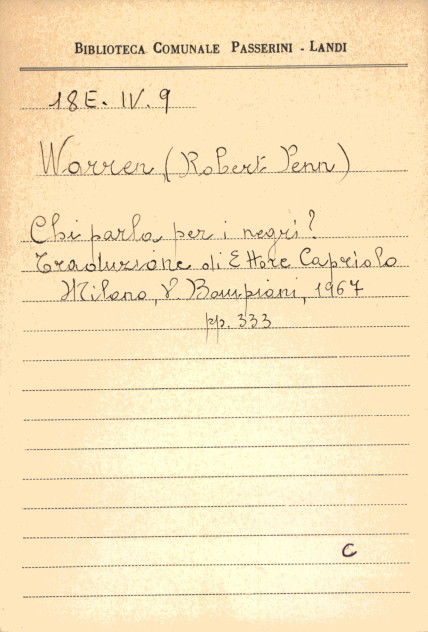 BIBLIOTECA COMUNALE PASSERINI - LANDI
18E. IV. 9
Warren (Robert Penn)
Chi parla per i negri?
Traduzione di Ettore Capriolo
Milano, V. Bompiani, 1967
pp. 333
C